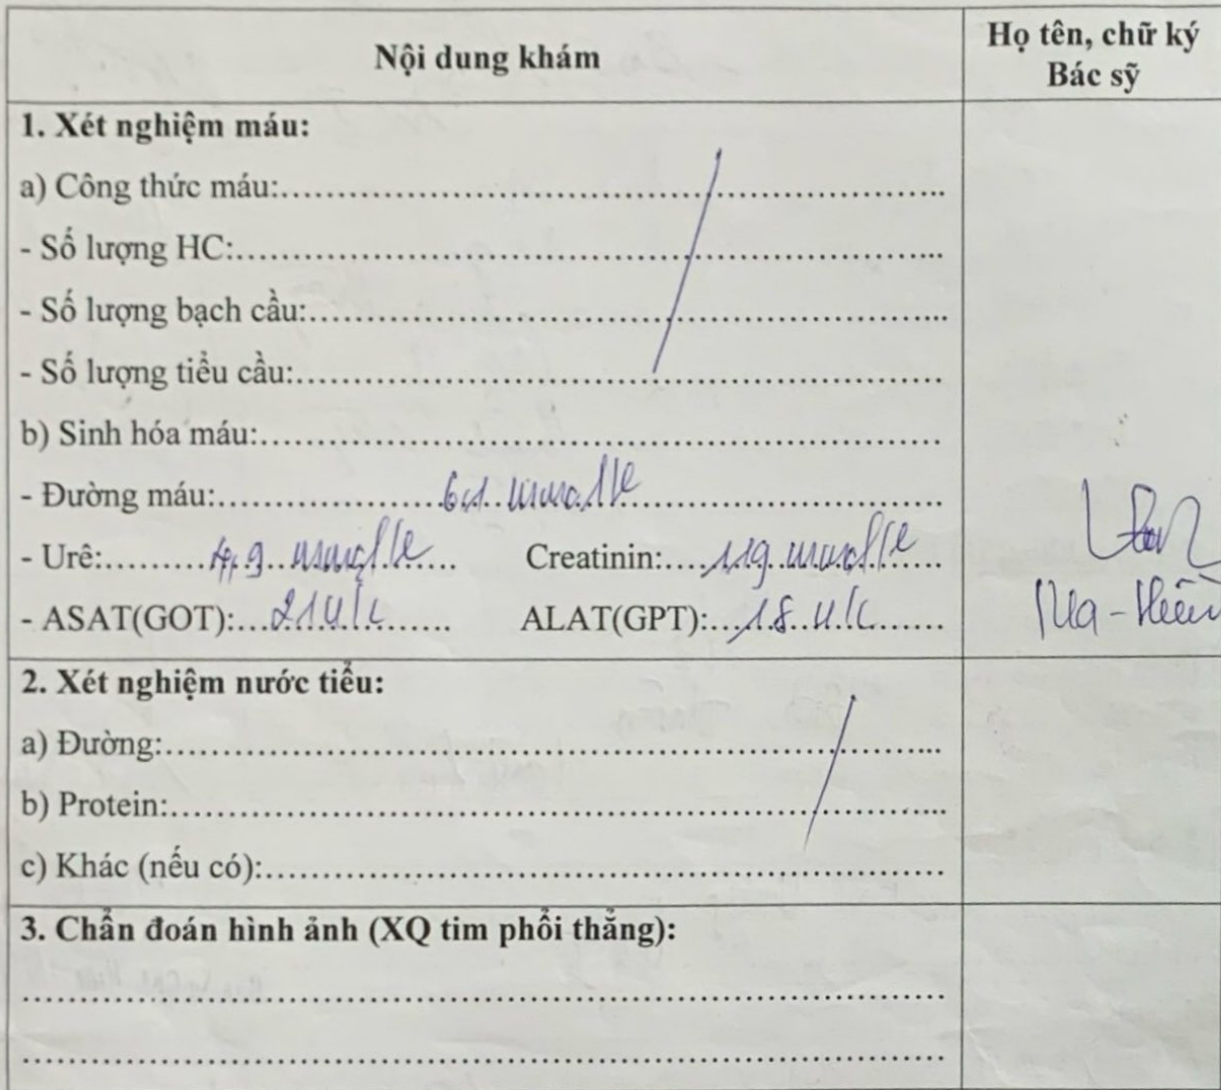 Nội dung khám
Họ tên, chữ ký
Bác sỹ
1. Xét nghiệm máu:
a) Công thức máu:
- Số lượng HC:
- Số lượng bạch cầu:
- Số lượng tiểu cầu:
b) Sinh hóa máu:
- Đường máu: 6,1 mmol/l
- Urê: 4,9 mmol/l Creatinin: 119 mmol/l
- ASAT(GOT): 21 U/L ALAT(GPT): 18 U/L
2. Xét nghiệm nước tiểu:
a) Đường:
b) Protein:
c) Khác (nếu có):
3. Chẩn đoán hình ảnh (XQ tim phổi thẳng):